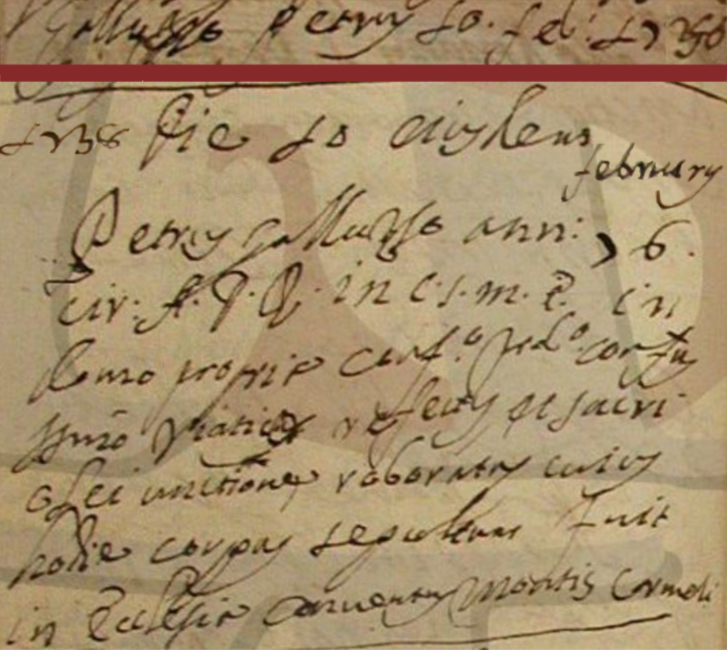 Gallusso Petrus 10. feb: 1736
1736 Die 10 eiusdem
february
Petrus Gallusso ann: 76.
civ: in C.S.M.E. in
domo propria conf.o sanctissimo
viatico refectus et sacri
olei unctione roboratus cuius
hodie corpus sepultum fuit
in Ecclesia conventus montis Carmeli